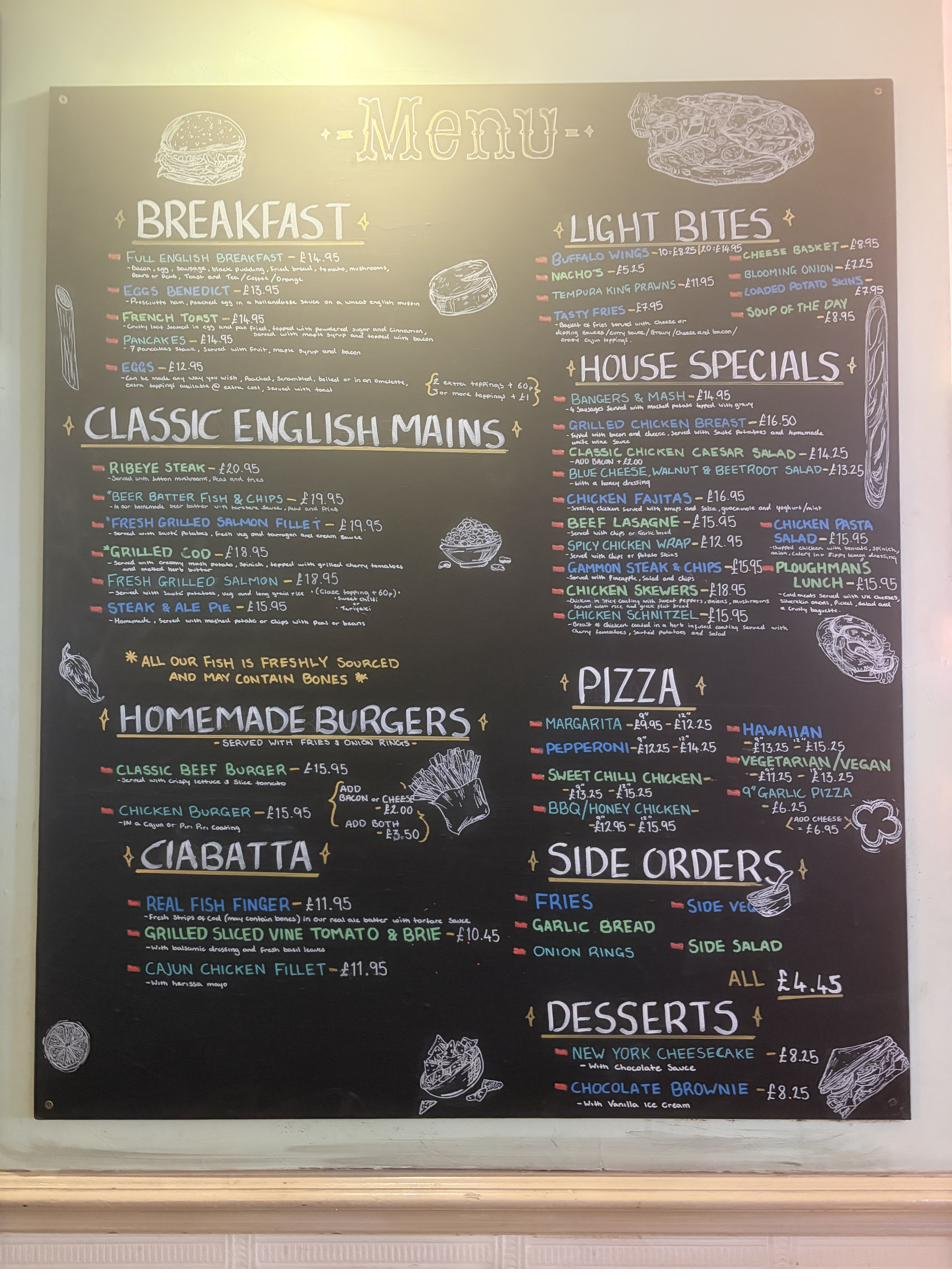 Menu
BREAKFAST
FULL ENGLISH BREAKFAST - £14.95
- Bacon, egg, sausage, black pudding, fried bread, tomato, mushrooms,
Beans or Peas, Toast and Tea/Coffee/Orange
EGGS BENEDICT - £13.95
- Prosciutto ham, poached egg in a hollandaise sauce on a wheat english muffin
FRENCH TOAST - £14.95
- Crusty loaf soaked in egg and pan fried, topped with powdered sugar and cinnamon,
served with maple syrup and topped with bacon
PANCAKES - £14.95
- 7 Pancakes stack, served with fruit, maple syrup and bacon
EGGS - £12.95
- Can be made any way you wish, Poached, Scrambled, boiled or in an omelette,
extra toppings available @ extra cost, served with toast
2 extra toppings + 60p
or more toppings + £1
CLASSIC ENGLISH MAINS
RIBEYE STEAK - £20.95
- Served with button mushrooms, Peas and fries
*BEER BATTER FISH & CHIPS - £19.95
- In our homemade beer batter with tartare sauce, Peas and fries
*FRESH GRILLED SALMON FILLET - £19.95
- Served with sauté potatoes, fresh veg and tarragon and cream sauce
*GRILLED COD - £18.95
- Served with creamy mash potato, spinach, topped with grilled cherry tomatoes
and melted herb butter
FRESH GRILLED SALMON - £18.95
- Served with sauté potatoes, veg and long grain rice
(Glaze topping + 60p)
- Sweet chilli
or
- Teriyaki
STEAK & ALE PIE - £15.95
- Homemade, Served with mashed potato or chips with Peas or beans
*ALL OUR FISH IS FRESHLY SOURCED
AND MAY CONTAIN BONES*
HOMEMADE BURGERS
- SERVED WITH FRIES & ONION RINGS -
CLASSIC BEEF BURGER - £15.95
- Served with crispy lettuce & slice tomato
CHICKEN BURGER - £15.95
- IN a Cajun or Piri Piri Coating
ADD
BACON or CHEESE
- £2.00
ADD BOTH
- £3.50
CIABATTA
REAL FISH FINGER - £11.95
- Fresh Strips of Cod (may contain bones) in our real ale batter with tartare sauce
GRILLED SLICED VINE TOMATO & BRIE - £10.45
- With balsamic dressing and fresh basil leaves
CAJUN CHICKEN FILLET - £11.95
- With harissa mayo
LIGHT BITES
BUFFALO WINGS - 10=£8.25|20=£14.95
NACHO'S - £5.25
TEMPURA KING PRAWNS - £11.95
TASTY FRIES - £7.95
- Basket of fries served with cheese or
dipping sauces/curry sauce/gravy/cheese and bacon/
or our cajun toppings.
CHEESE BASKET - £8.95
BLOOMING ONION - £7.25
LOADED POTATO SKINS -
£7.95
SOUP OF THE DAY
- £8.95
HOUSE SPECIALS
BANGERS & MASH - £14.95
- 4 Sausages served with mashed potato topped with gravy
GRILLED CHICKEN BREAST - £16.50
- Topped with bacon and cheese, served with sauté potatoes and homemade
white wine sauce
CLASSIC CHICKEN CAESAR SALAD - £14.25
- ADD BACON + £2.00
BLUE CHEESE, WALNUT & BEETROOT SALAD - £13.25
- With a honey dressing
CHICKEN FAJITAS - £16.95
- Sizzling chicken served with wraps and salsa, guacamole and yoghurt/mint
BEEF LASAGNE - £15.95
- Served with chips or garlic bread
SPICY CHICKEN WRAP - £12.95
- Served with chips or potato skins
GAMMON STEAK & CHIPS - £15.95
- Served with Pineapple, Salad and chips
CHICKEN SKEWERS - £18.95
- Chicken in spice coating with sweet peppers, onions, mushrooms
served with rice and greek flat bread
CHICKEN SCHNITZEL - £15.95
- Breast of chicken coated in a herb infused coating served with
cherry tomatoes, sautéed potatoes and salad
CHICKEN PASTA
SALAD - £15.95
- Chopped chicken with tomato, spinach,
onion, celery in a zippy lemon dressing
PLOUGHMAN'S
LUNCH - £15.95
- Cold meats served with UK cheeses,
silverskin onions, Pickle, salad and
a crusty baguette
PIZZA
MARGARITA - 9" £9.95 - 12" £12.25
PEPPERONI - 9" £12.25 - 12" £14.25
SWEET CHILLI CHICKEN -
9" £13.25 - 12" £15.25
BBQ/HONEY CHICKEN -
9" £12.95 - 12" £15.95
HAWAIIAN
9" £13.25 - 12" £15.25
VEGETARIAN/VEGAN
9" £11.25 - 12" £13.25
9" GARLIC PIZZA
- £6.25
ADD CHEESE
- £6.95
SIDE ORDERS
FRIES
GARLIC BREAD
ONION RINGS
SIDE VEG
SIDE SALAD
ALL £4.45
DESSERTS
NEW YORK CHEESECAKE - £8.25
- With Chocolate Sauce
CHOCOLATE BROWNIE - £8.25
- With Vanilla Ice Cream